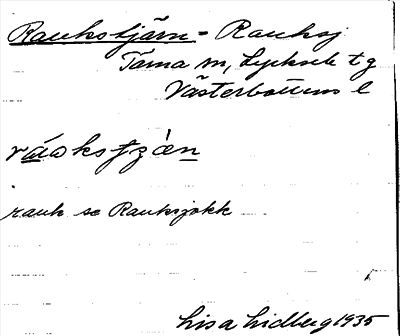 Raukstjärn = Rauksj.
Tärna sn, Lycksele tg
Västerbottens l
ráokstjzèn
rauk se Rauksjokk
Lisa Lidberg 1935